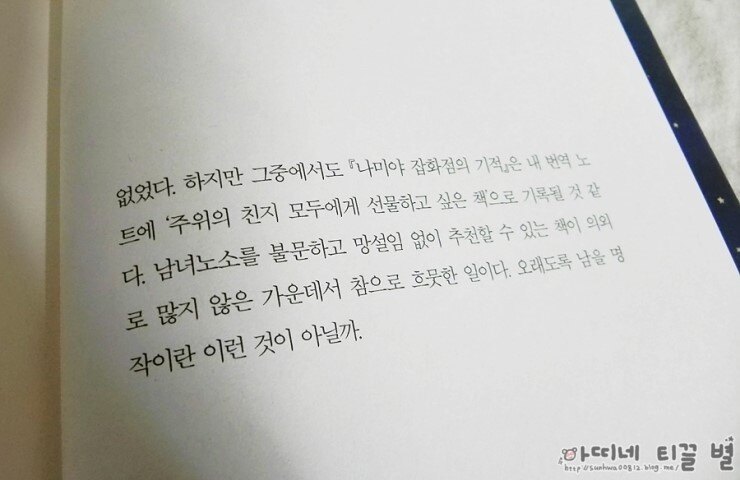 없었다. 하지만 그중에서도 『나미야 잡화점의 기적』은 내 번역 노
트에 ‘주위의 친지 모두에게 선물하고 싶은 책’으로 기록될 것 같
다. 남녀노소를 불문하고 망설임 없이 추천할 수 있는 책이 의외
로 많지 않은 가운데서 참으로 흐뭇한 일이다. 오래도록 남을 명
작이란 이런 것이 아닐까.
아띠네 티끌 별
http://sunhwa00812.blog.me/